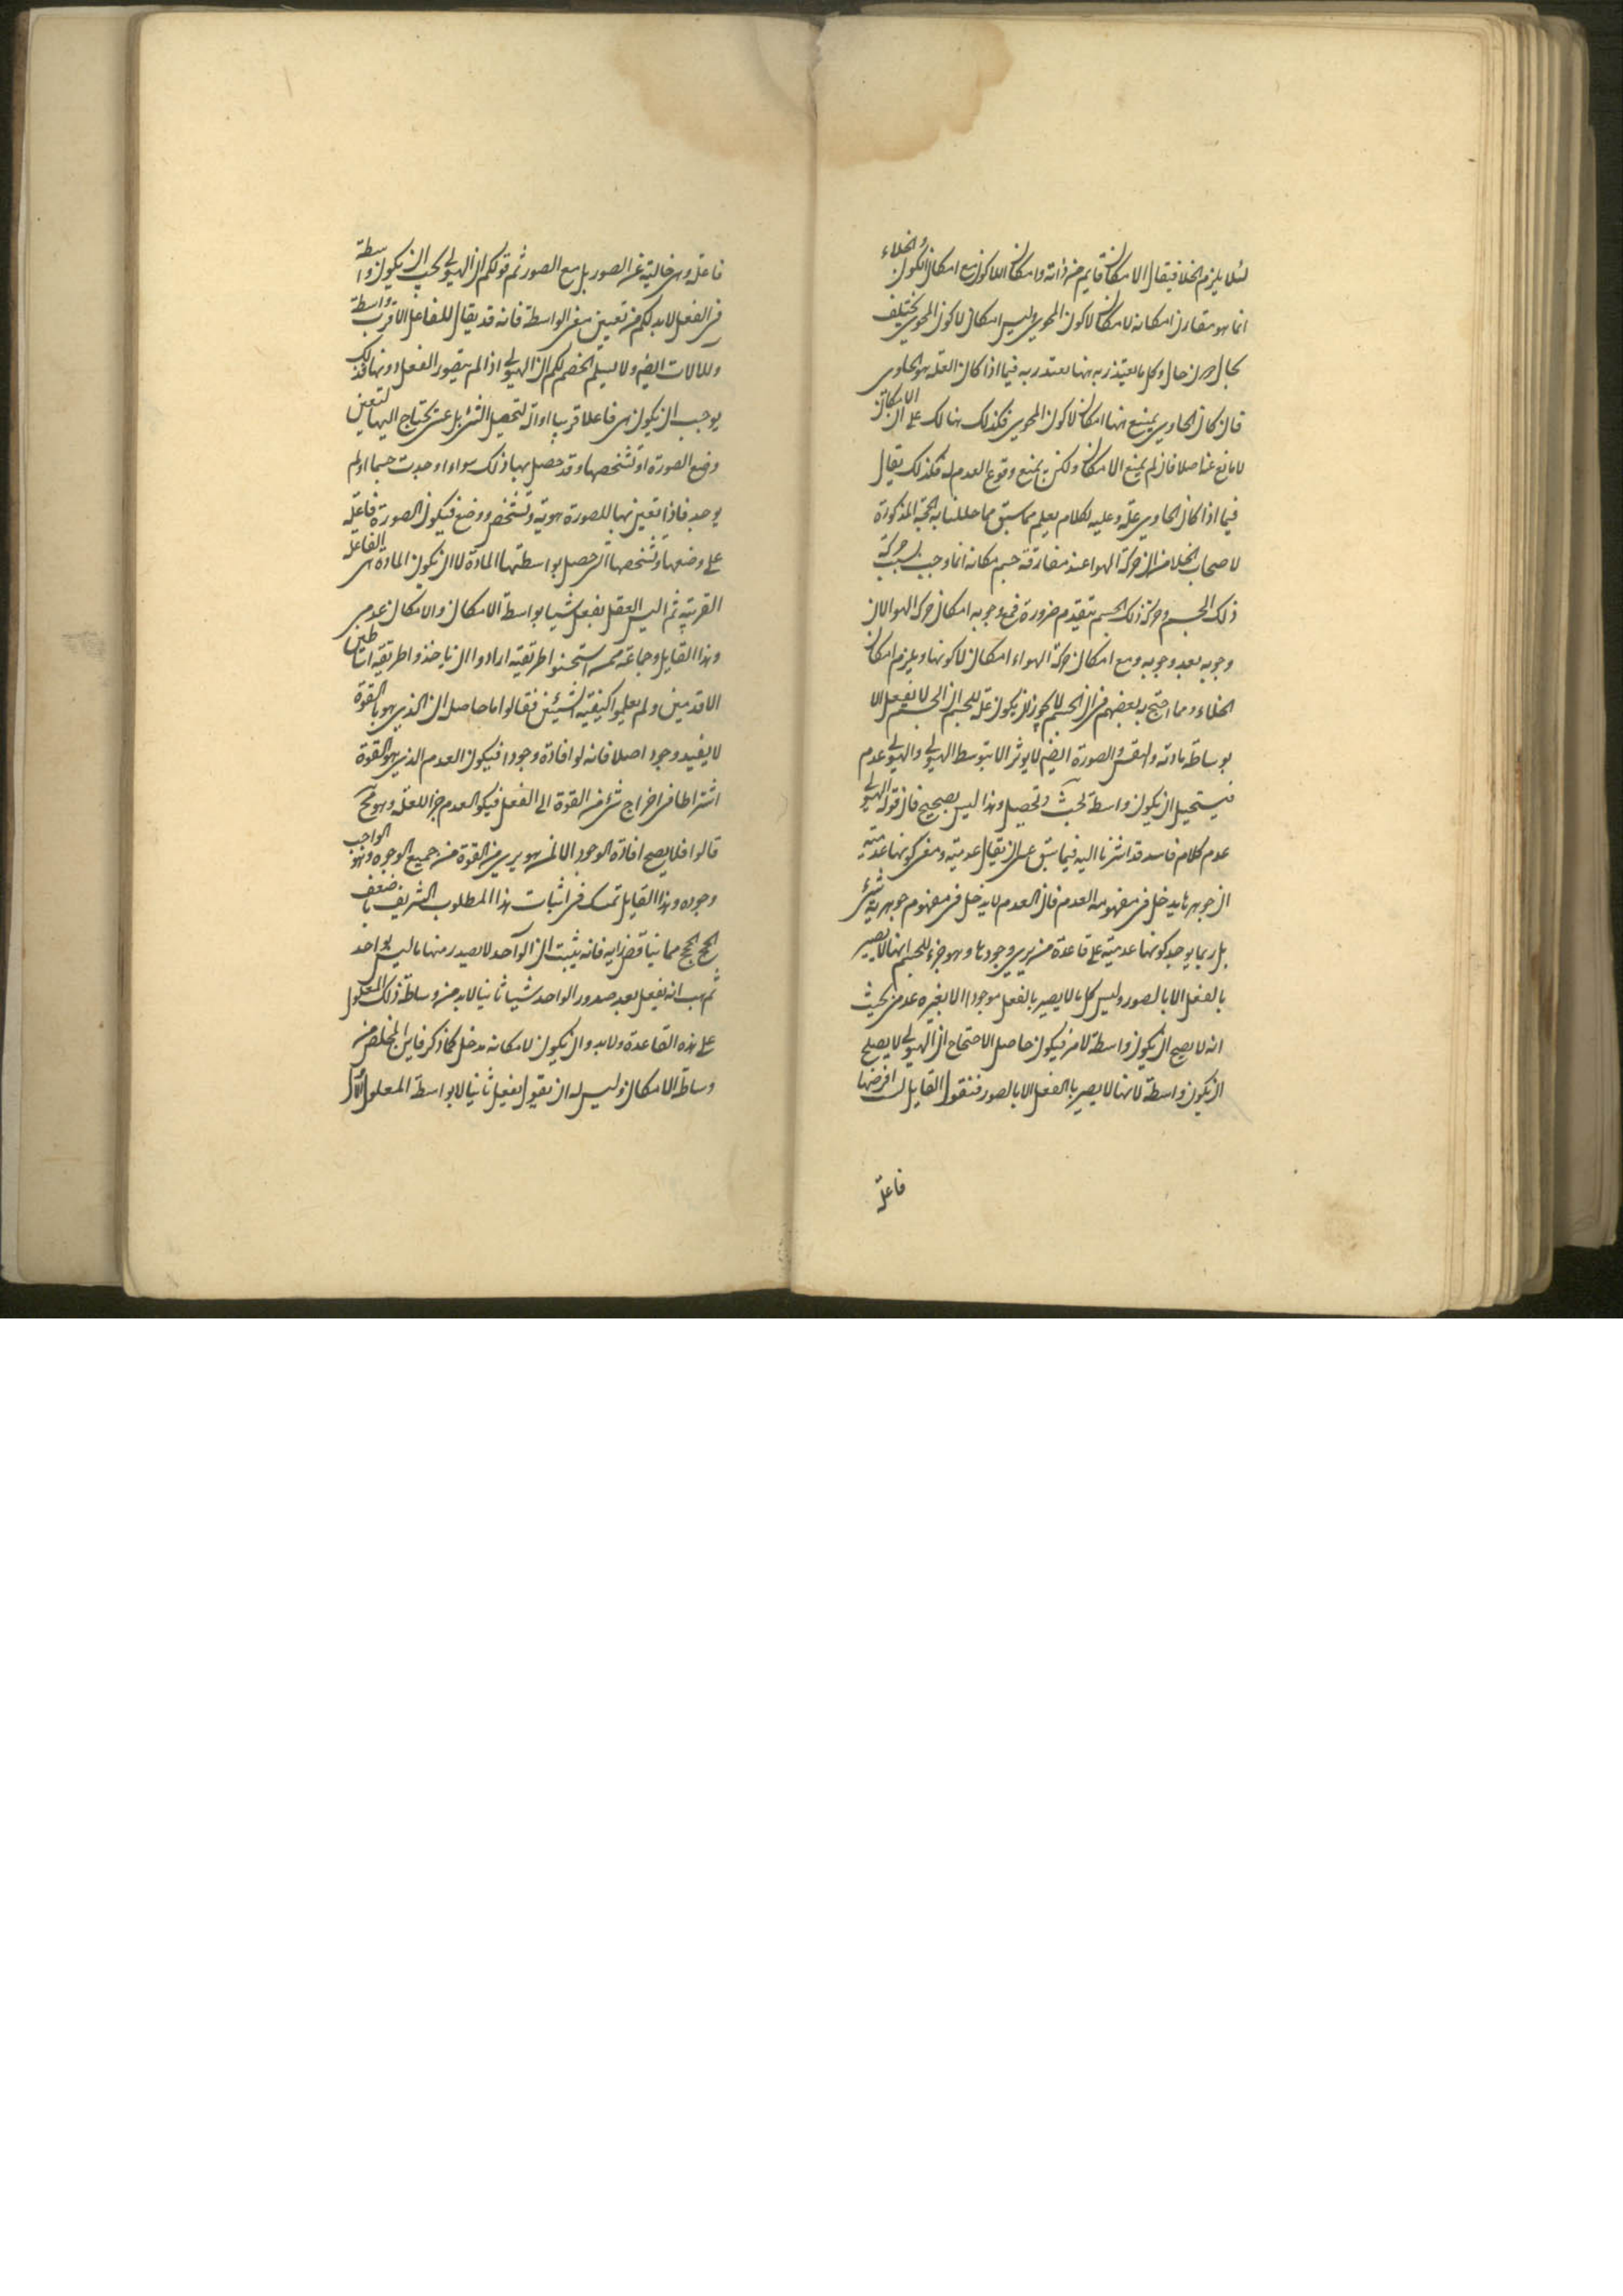 لئلا يلزم الخلا فيقال الامكان قايم من ذاته وامكان اللاكون مع امكان الكون والخلاء
انما هو مقارن امكانه لامكان لاكون المحوى وليس امكان لاكون المحوى يختلف
بحال دون حال وكل ما يعتذر به ههنا يعتذر به فيما اذا كان العلة هو الحاوى
فان كان الحاوى يمنع ههنا امكان لاكون المحوى فكذلك هنالك على ان الامكان
لا مانع عنه اصلا فان لم يمنع الامكان ولكن يمنع وقوع العدم له فكذلك يقال
فيما اذا كان الحاوى علة وعليه لكلام يعلم مما سبق مما حللنا به الحجة المذكورة
لاصحاب الخلا من ان حركة الهوا عند مفارقة جسم مكانه انما وجب بسبب حركة
ذلك الجسم وحركة ذلك الجسم يتقدم ضرورة فمع وجوبه امكان حركة الهوا لان
وجوبه بعد وجوبه ومع امكان حركة الهواء امكان لاكونها ويلزم امكان
الخلاء ومما احتج به بعضهم فى ان الجسم لا يجوز ان يكون علة للجسم ان الجسم لا يفعل الا
بوساطة مادته والنفس والصورة ايضا لا يوثر الا بتوسط الهيولى والهيولى عدم
فيستحيل ان يكون واسطة لحيث وتحصيل وهذا ليس بصحيح فان قوله الهيولى
عدم كلام فاسد قد اشرنا اليه فيما سبق على ان يقال عدمية ومعنى كونها عدمية
ان جوهرها يدخل فى مفهومه العدم فان العدم لا يدخل فى مفهوم جوهرية شىء
بل ربما يوجد كونها عدمية على قاعدة من يرى وجودها وهو جزء للجسم انها لا يصير
بالفعل الا بالصور وليس كل ما لا يصير بالفعل موجودا الا بغيره عدمى بحيث
انه لا يصح ان يكون واسطة لامر فيكون حاصل الاحتجاج ان الهيولى لا يصلح
ان يكون واسطة لانها لا يصير بالفعل الا بالصور فنقول القايل لست افرضها
فاعلة
فاعلة وهى خالية عن الصور بل مع الصور ثم قولكم ان الهيولى يجب ان يكون واسطة
فى الفعل لا بد لكم من تعيين معنى الواسطة فانه قد يقال للفاعل الاقرب واسطة
وللالات ايضا ولا يسلم الخصم لكم ان الهيولى اذا لم يتصور الفعل دونها فذلك
يوجب ان يكون هى فاعلا قريبا او الة لتحصيل الشىء بل عسى يحتاج اليها لتعين
وضع الصورة او تشخصها وقد حصل بها ذلك سواء اوجدت جسما او لم
يوجد فاذا تعين بها للصورة هوية وتشخص ووضع فيكون الصورة فاعلة
على وضعها وتشخصها الذى حصل بواسطتها المادة لا ان يكون المادة هى الفاعلة
القريبة ثم اليس العقل يفعل شيا بواسطة الامكان والامكان عدمى
وهذا القايل وجماعة معه استحسنوا طريقة ارادوا ان ياخذوا طريقة اساطين
الاقدمين ولم يعلموا كيفية الشيئين فقالوا ما حاصله ان الذى هو بالقوة
لا يفيد وجودا اصلا فانه لو افاده وجودا فيكون العدم الذى هو القوة
اشتراطا فى اخراج شىء من القوة الى الفعل فيكون العدم جزءا للعلة وهو مح
قالوا فلا يصح افادة الوجود الا لمن هو برى من القوة من جميع الوجوه وهو الواجب
وجوده وهذا القايل تمسك فى اثبات هذا المطلوب الشريف باضعف
الحجج مما يناقض رايه فانه يثبت ان الواحد لا يصدر منها ما ليس بواحد
ثم هب انه يفعل بعد صدور الواحد شيا ثانيا لا بد من وساطة ذلك المعلول
على هذه القاعدة ولا بد وان يكون لامكانه مدخل كما ذكر فاين المخلص من
وساطة الامكان وليس له ان يقول يفعل ثانيا لا بواسطة المعلول الاول